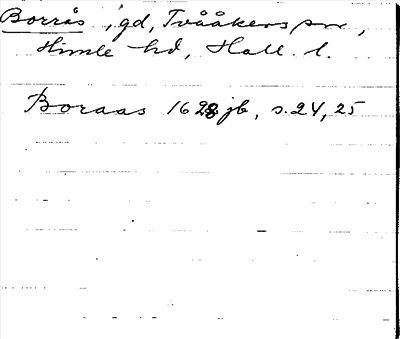 Borrås, gd, Tvååkers sn,
Himle hd, Hall. l.
Boraas 1628 jb, s. 24, 25